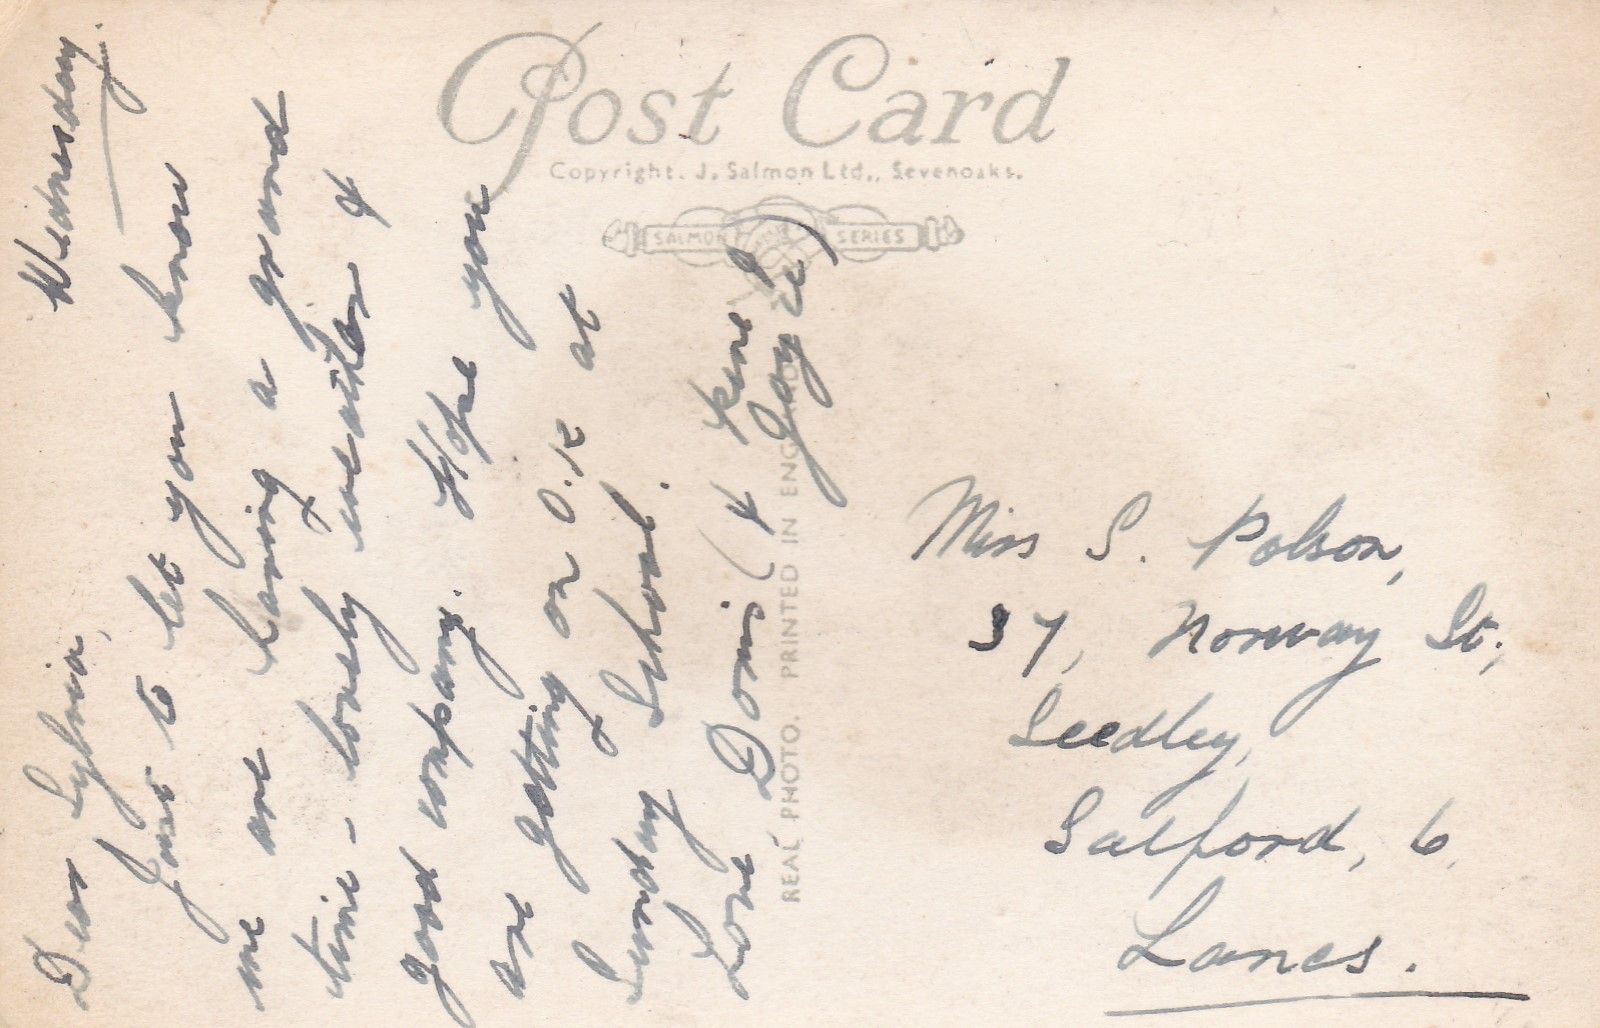 Post Card
Copyright. J. Salmon Ltd., Sevenoaks.
SALMON SERIES
REAL PHOTO. PRINTED IN ENGLAND
Wednesday.
Dear Sylvia,
Just to let you know
we are having a grand
time - lovely weather &
good company. Hope you
are getting on O.K at
Sunday School.
Love Doris (& Ken!
Gay 22)
Miss S. Polson,
37, Norway St.,
Seedley,
Salford, 6,
Lancs.